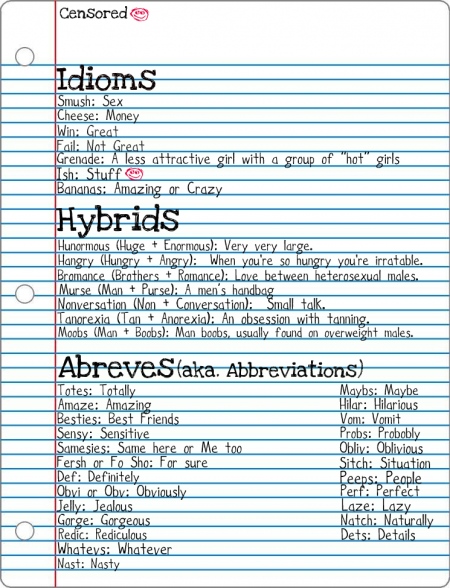 Censored
Idioms
Smush: Sex
Cheese: Money
Win: Great
Fail: Not Great
Grenade: A less attractive girl with a group of "hot" girls
Ish: Stuff
Bananas: Amazing or Crazy
Hybrids
Hunormous (Huge + Enormous): Very very large.
Hangry (Hungry + Angry): When you're so hungry you're irratable.
Bromance (Brothers + Romance): Love between heterosexual males.
Murse (Man + Purse): A men's handbag
Nonversation (Non + Conversation): Small talk.
Tanorexia (Tan + Anorexia): An obsession with tanning.
Moobs (Man + Boobs): Man boobs, usually found on overweight males.
Abreves (aka. Abbreviations)
Totes: Totally
Amaze: Amazing
Besties: Best Friends
Sensy: Sensitive
Samesies: Same here or Me too
Fersh or Fo Sho: For sure
Def: Definitely
Obvi or Obv: Obviously
Jelly: Jealous
Gorge: Gorgeous
Redic: Rediculous
Whatevs: Whatever
Nast: Nasty
Maybs: Maybe
Hilar: Hilarious
Vom: Vomit
Probs: Probobly
Obliv: Oblivious
Sitch: Situation
Peeps: People
Perf: Perfect
Laze: Lazy
Natch: Naturally
Dets: Details